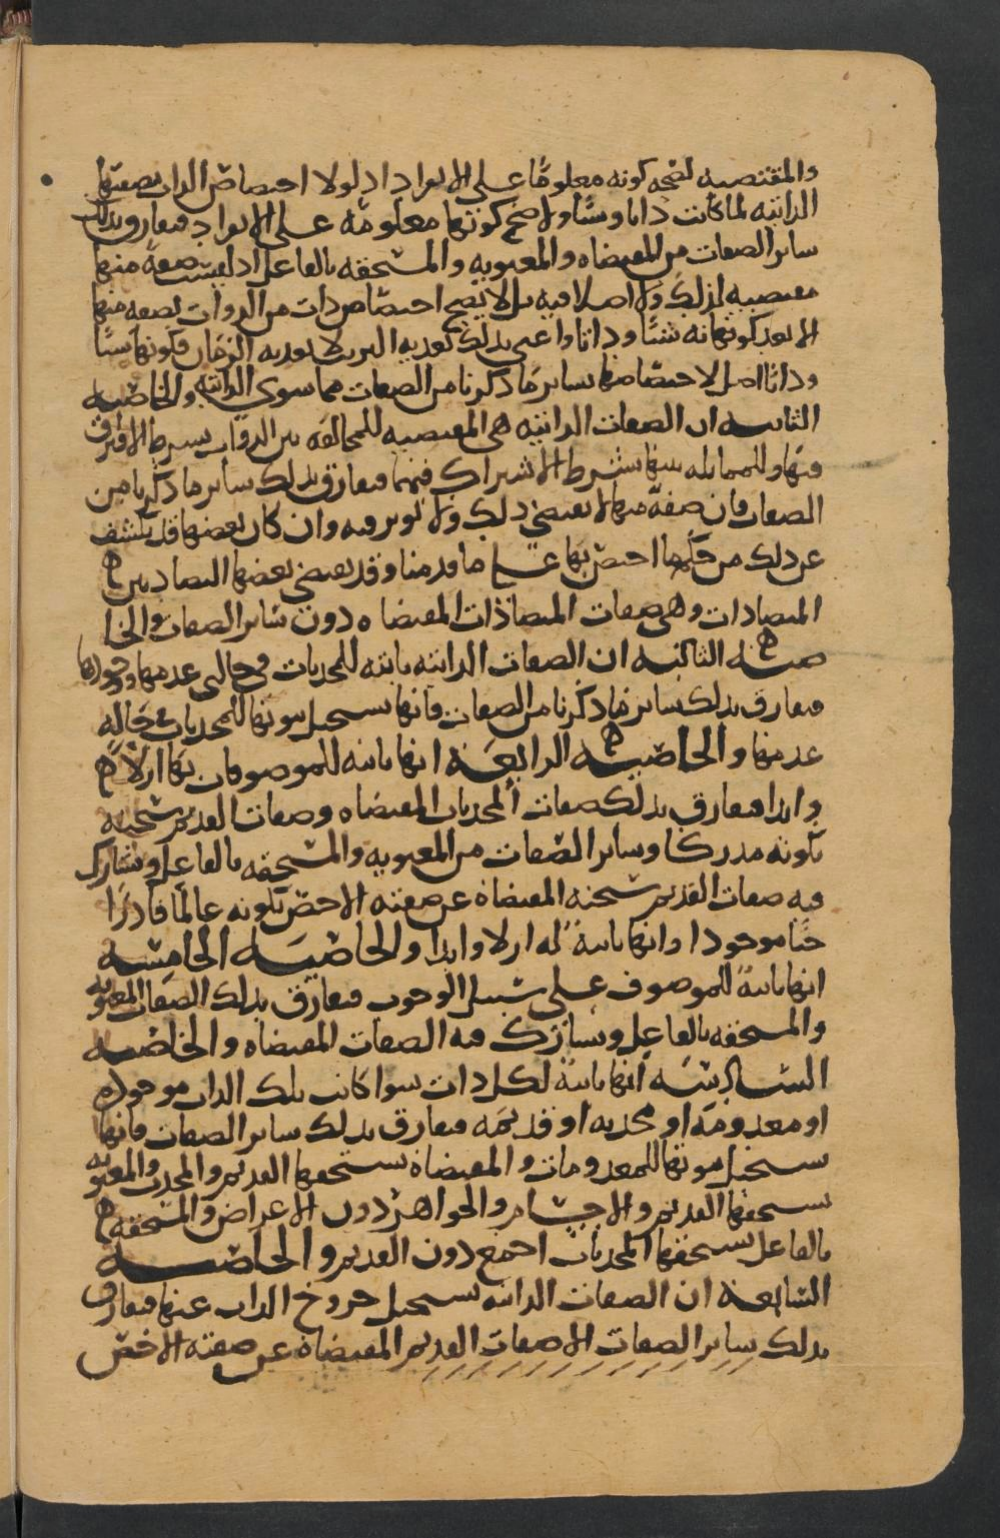 والمقتضيه لصحه كونه معلومًا على الانفراد اذ لولا اختصاص الذات بصفتها
الذاتيه لما كانت ذاتا وشيًا ولا صح كونها معلومة على الانفراد فيفارق بذلك
ساير الصفات من المقتضاه والمعنويه والمستحقه بالفاعل اذ ليست صفة منها
مقتضيه لذلك ولا اصلا فيه بل لا يصح اختصاص ذات من الذوات بصفه منها
الا بعد كونها شيًا وذاتا واعني بذلك بعديه الترتيب لا بعديه الزمان فكونها شيًا
وذاتا اصل لاختصاصها بساير ما ذكرنا من الصفات مما سوى الذاتيه والخاصيه
الثانيه ان الصفات الذاتيه هي المقتضيه للمخالفه بين الذوات بشرط الافتراق
فيها وللمماثله بينها بشرط الاشتراك فيها فيفارق بذلك ساير ما ذكرنا من
الصفات فان صفة منها لا تقتضي ذلك ولا توثر فيه وان كان بعضها قد يكشف
عن ذلك من حكمها اختص بها على ما قدمنا وقد يقتضي بعضها التضاد بين
المتضادات وهي صفات المتضادات المقتضاه دون ساير الصفات والخا
صيه الثالثه ان الصفات الذاتيه ثابته للمحدثات في حالتي عدمها ووجودها
فيفارق بذلك ساير ما ذكرنا من الصفات فانها يستحيل ثبوتها للمحدثات في حاله
عدمها والخاصيه الرابعه انها ثابته للموصوفات بها ازلًا
وابدا فيفارق بذلك صفات المحدثات المقتضاه وصفات القديم سبحانه
بكونه مدركا وساير الصفات من المعنويه والمستحقه بالفاعل ويشارك
فيه صفات القديم سبحنه المقتضاة عن صفته الاخص بكونه عالمًا قادرًا
حيًا موجودا وانها ثابتة له ازلا وابدا والخاصيه الخامسه
انها ثابتة للموصوف على سبيل الوجوب فيفارق بذلك الصفات المعنويه
والمستحقه بالفاعل ويشارك فيه الصفات المقتضاه والخاصيه
السادسه انها ثابتة لكل ذات سوا كانت تلك الذات موجوده
او معدومة او محدثه او قديمه فيفارق بذلك ساير الصفات فانها
يستحيل ثبوتها للمعدومات والمقتضاة يستحقها القديم والمحدث والمعنويه
يستحقها القديم والاجسام والجواهر دون الاعراض والمستحقه
بالفاعل يستحقها المحدثات اجمع دون القديم والخاصيه
السابعه ان الصفات الذاتيه يستحيل خروج الذات عنها فيفارق
بذلك ساير الصفات الا صفات القديم المقتضاة عن صفته الاخص